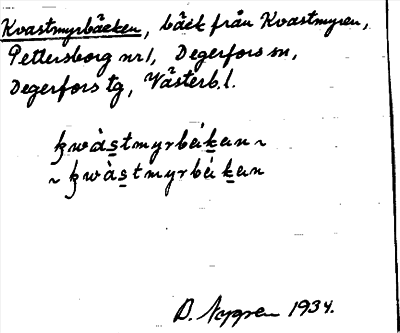 Kvastmyrbäcken, bäck från Kvastmyren,
Pettersborg nr 1, Degerfors sn,
Degerfors tg, Västerb. l.
ʞwàstmyrbɛ́kɛn ~
~ ʞwàstmyrbɛ́kɛn
D. Nygren 1934.